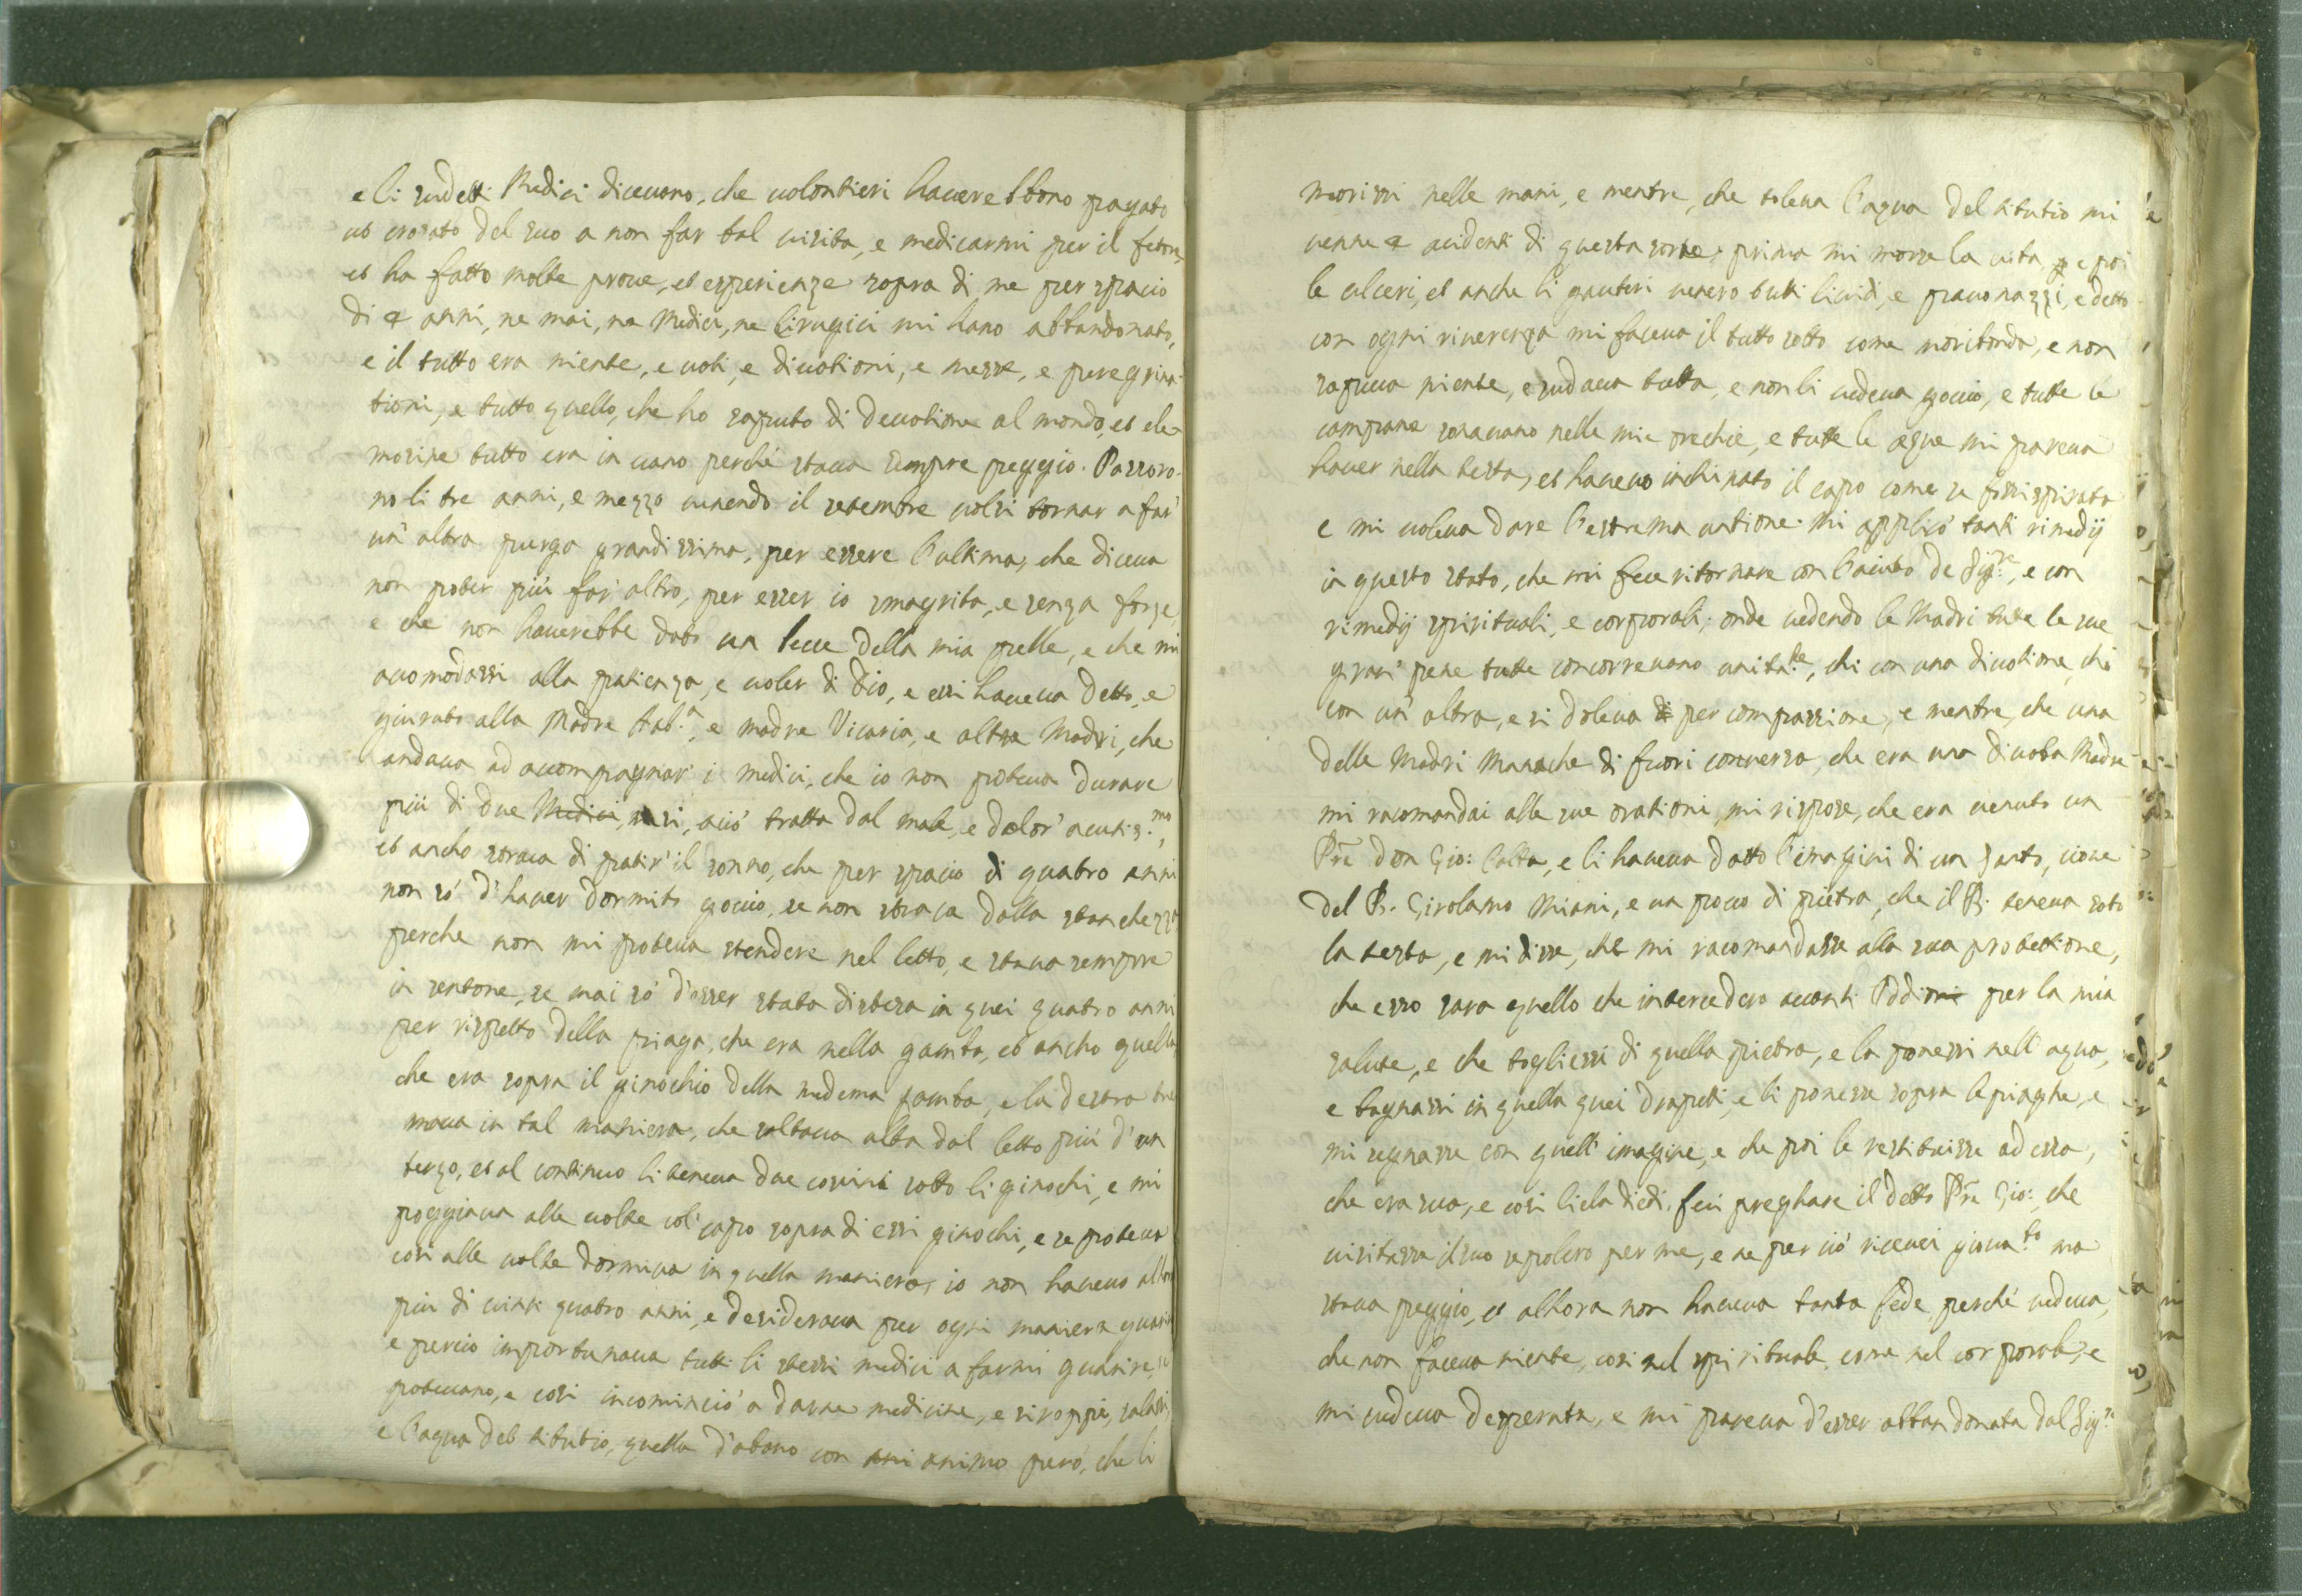 e li sudetti Medici diceuano, che uolontieri hauerebbono pagato
un crosato del suo a non far tal uisita, e medicarmi per il fetore,
et ha fatto molte proue, et esperienze sopra di me per spacio
di 4 anni, ne mai, ne Medici, ne Cirugici mi hano abbandonato,
e il tutto era niente, e uoti, e diuotioni, e messe, e peregrina-
tioni, e tutto quello, che ho saputo di deuotione al mondo, et ele-
mosine tutto era in uano perche staua sempre peggio. Passoro-
no li tre anni, e mezzo uenendo il setembre uolsi tornar a far'
un' altra purga grandissima, per essere l'ultima, che diceua
non poter più far' altro, per esser io smagrita, e senza forze,
e che non hauerebbe dato un becce della mia pelle, e che mi
acomodassi alla patienza, e uoler di Dio, e essi haueua detto, e
giurato alla Madre Aab.ª, e madre Vicaria, e altre Madri, che
andaua ad accompagnar' i medici, che io non poteua durare
più di due Medici, mesi, ciò tratta dal male, e dolor' acutis.mo,
et ancho straca di patir' il sonno, che per spacio di quatro anni
non sò d'hauer dormito gocio, se non straca dalla stanchezza
perche non mi poteua stendere nel letto, e staua sempre
in sentone, se mai sò d'esser stata distesa in quei quatro anni
per rispetto della piaga, che era nella gamba, et ancho quella
che era sopra il ginochio della medema gamba, e la destra tre
maua in tal maniera, che saltaua alta dal letto più d'un
terzo, et al continuo li teneua due cossini sotto li ginochi, e mi
poggiaua alle uolte col' capo sopra di essi ginochi, e se poteua
cosi alle uolte dormiua in quella maniera, io non haueuo allora
più di uinti quatro anni, e desideraua per ogni maniera guarir
e perciò importunaua tutti li stessi medici a farmi guarire, se
poteuano, e cosi incominciò a darme medicine, e siroppi, salassi,
e l'aqua del titutio, quella d'abano con ani animo però, che li
morissi nelle mani, e mentre, che toleua l'aqua del titutio mi
uenne 4 acidenti di questa sorte: prima mi morse la uita, p e poi
le ulceri, et anche li gauteri uenero tutti liuidi, e pauonazzi, e detto
con ogni riuerenza mi faceua il tutto sotto come moribonda, e non
sapeua niente, e sudaua tutta, e non li uedeua gocio, e tutte le
campane sonauano nelle mie orechie, e tutte le aque mi pareua
hauer nella testa, et haueuo inchinato il capo come se fossi spirata
e mi uoleua dare l'estrema untione. Mi applicò tanti rimedij
in questo stato, che mi fece ritornare con l'aiuto de Sig.re, e con
rimedij spirituali, e corporali; onde uedendo le Madri tutte le sue
graui pene tutte concorreuano unita.te, chi con una diuotione, chi
con un' altra, e si doleua di per compassione, e mentre, che una
delle Madri Manache di fuori conuersa, che era una diuota Madre
mi racomandai alle sue orationi, mi rispose, che era uenuto un
Prê Don Gio: Calta, e li haueua datto l'imagini di un Santo, cioue
del B. Girolamo Miani, e un poco di pietra, che il B. teneua soto
la testa, e mi disse, che mi racomandasse alla sua protettione,
che esso sara quello che intercedera auanti Iddio per la mia
salute, e che togliessi di quella pietra, e la ponessi nell' aqua,
e bagnassi in quella quei drapeti, e li ponesse sopra le piaghe, e
mi segnasse con quell' imagine, e che poi le restituisse ad essa,
che era sua, e cosi li ela diedi, feci preghare il detto Prê Gio: che
uisitasse il suo sepolcro per me, e ne per ciò riceuei gioua.to ma
staua peggio, et alhora non haueua tanta fede, perché uedeua,
che non faceua niente, cosi nel spirituale, come nel corporale, e
mi uedeua desperata, e mi pareua d'esser abbandonata dal Sig.re